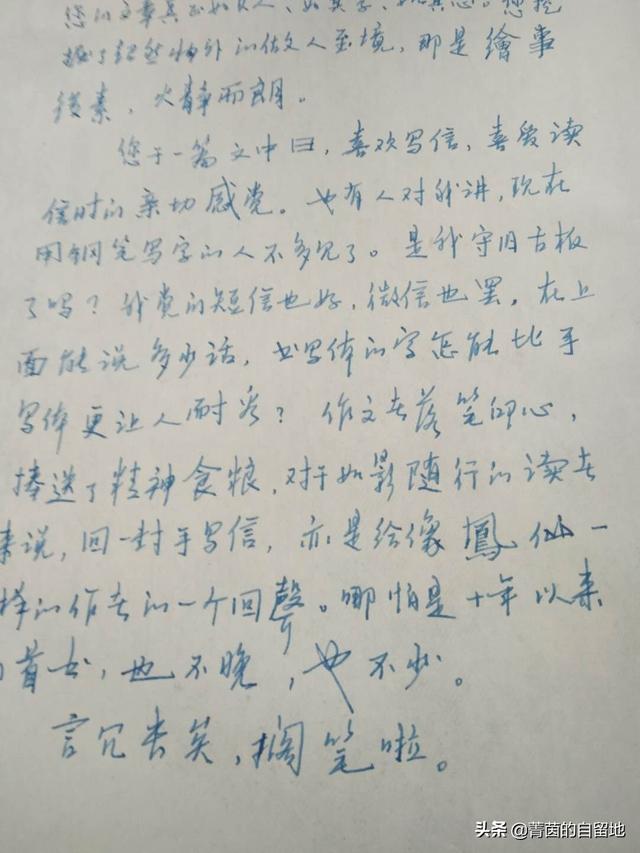 您的文章其正如其人、如其字、如其心。您挖
掘了超然物外的做文人至境，那是繪事
後素，火静而朗。
您于一篇文中曰，喜欢写信，喜爱读
信时的亲切感觉。也有人对我讲，现在
用钢笔写字的人不多见了。是我守旧古板
了吗？我觉的短信也好，微信也罢，在上
面能说多少话，书写体的字怎能比手
写体更让人耐看？作文者落笔印心，
捧送了精神食粮，对于如影随行的读者
来说，回一封手写信，亦是给像鳳仙一
样的作者的一个回聲。哪怕是十年以来
的首书，也不晚，也不少。
言冗赘矣，搁笔啦。
头条 @菁茵的自留地